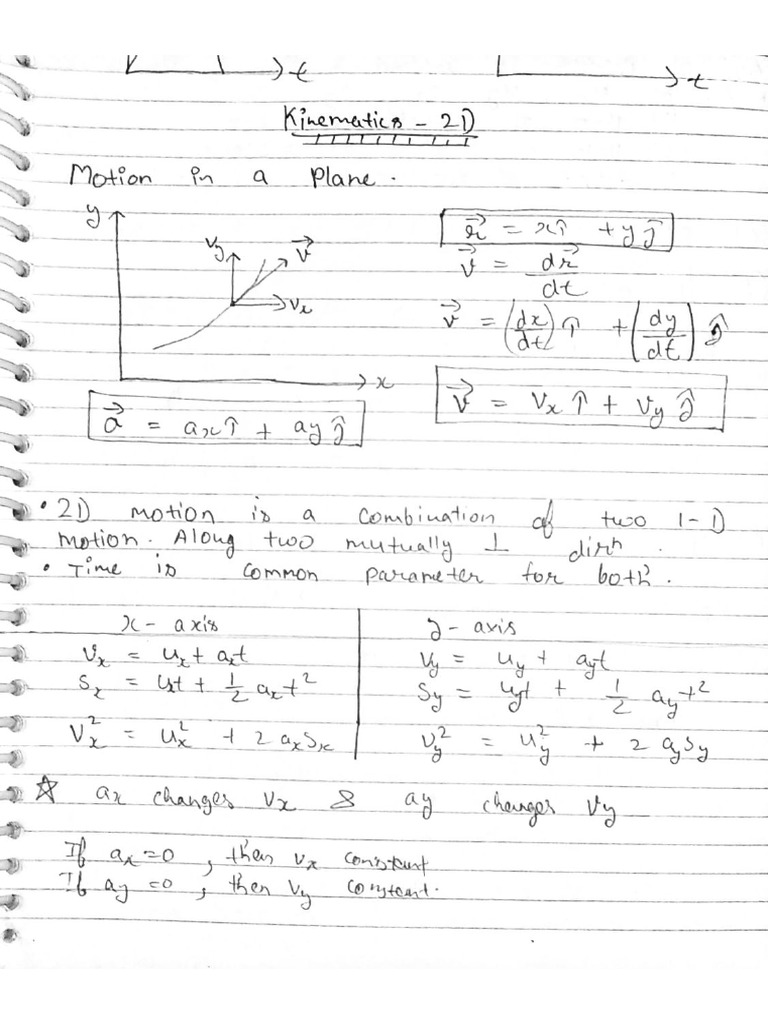 t
t
Kinematics - 2D
Motion in a Plane.
y
vy
v⃗
vx
x
r⃗ = xî + yĵ
v⃗ = dr⃗/dt
v⃗ = (dx/dt) î + (dy/dt) ĵ
v⃗ = Vx î + Vy ĵ
a⃗ = axî + ayĵ
• 2D motion is a combination of two 1-D
motion. Along two mutually ⊥ dirⁿ.
• Time is common parameter for both.
x - axis
Vx = ux + axt
Sx = uxt + 1/2 axt²
Vx² = ux² + 2 axSx
y - axis
Vy = uy + ayt
Sy = uyt + 1/2 ayt²
Vy² = uy² + 2 aySy
☆ ax changes Vx & ay changes Vy
If ax=0, then vx constant
If ay=0, then Vy constant.